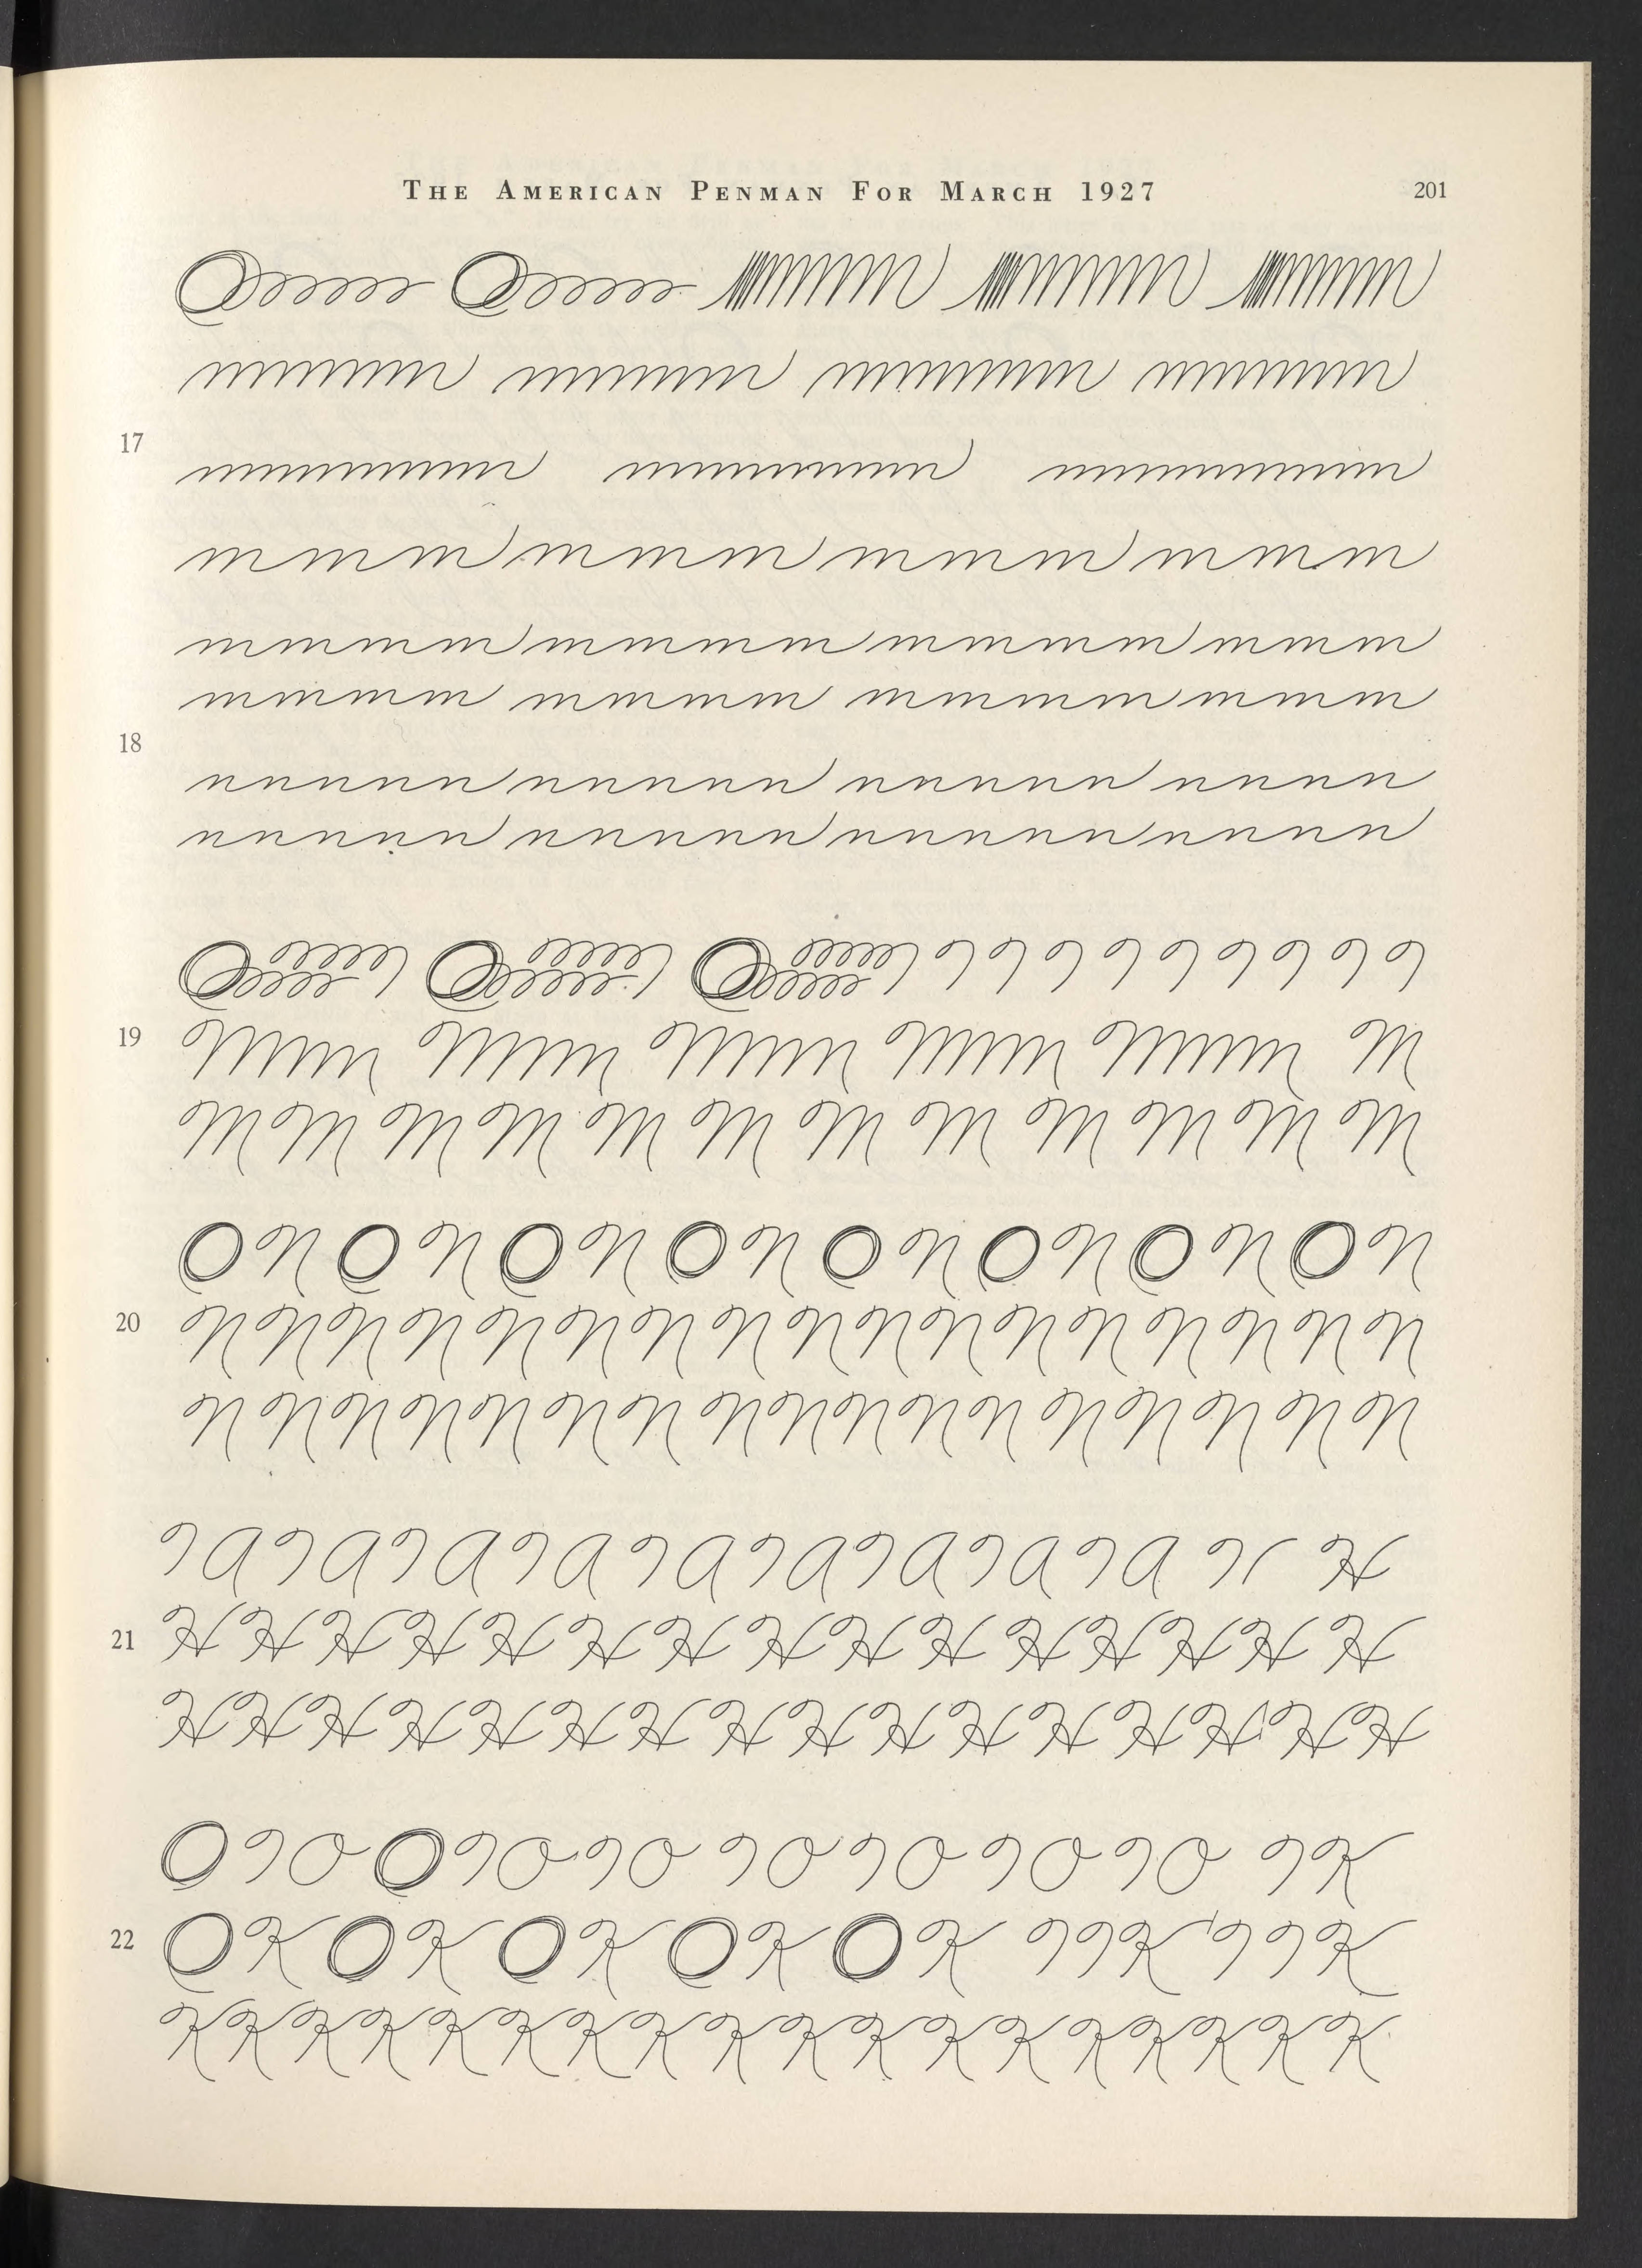 THE AMERICAN PENMAN FOR MARCH 1927 201
17
m m m m m m m m m m m m
m m m m m m m m m m m m m m m
m m m m m m m m m m m m m m m
18
n n n n n n n n n n n n n n n n n n n
n n n n n n n n n n n n n n n n n n n
19
M
M M M M M M M M M M M M
O N O N O N O N O N O N O N O N
20
N N N N N N N N N N N N N N N N N
N N N N N N N N N N N N N N N N N
H
21
H H H H H H H H H H H H H H H
H H H H H H H H H H H H H H H H
K
22
O K O K O K O K O K K K
K K K K K K K K K K K K K K K K K K